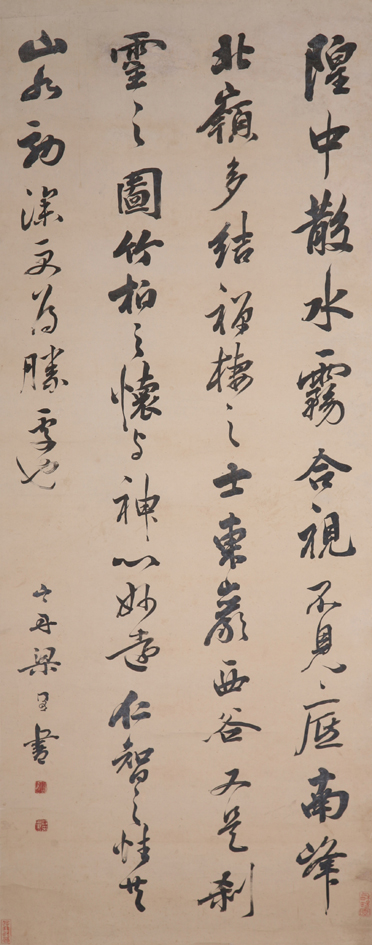 隍中散水霧合視不見底南峰
北嶺多結禪棲之士東巖西谷又是刹
靈之圖竹柏之懷与神心妙遠仁智之性共
山水効深更為勝處也
山舟梁同書